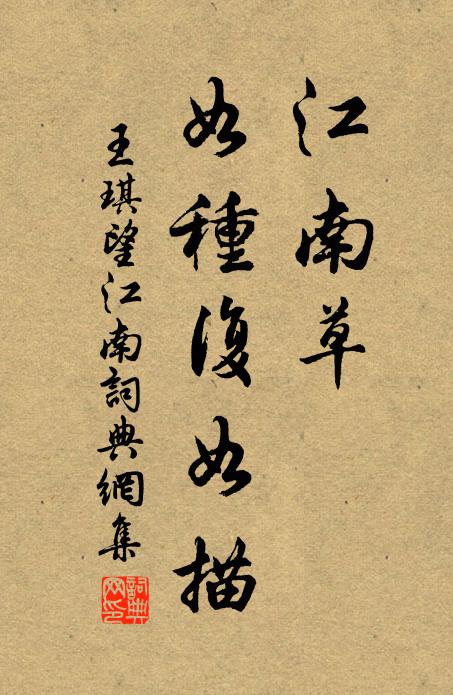 江南草
如種復如描
王琪望江南詞典網集
詞典网印